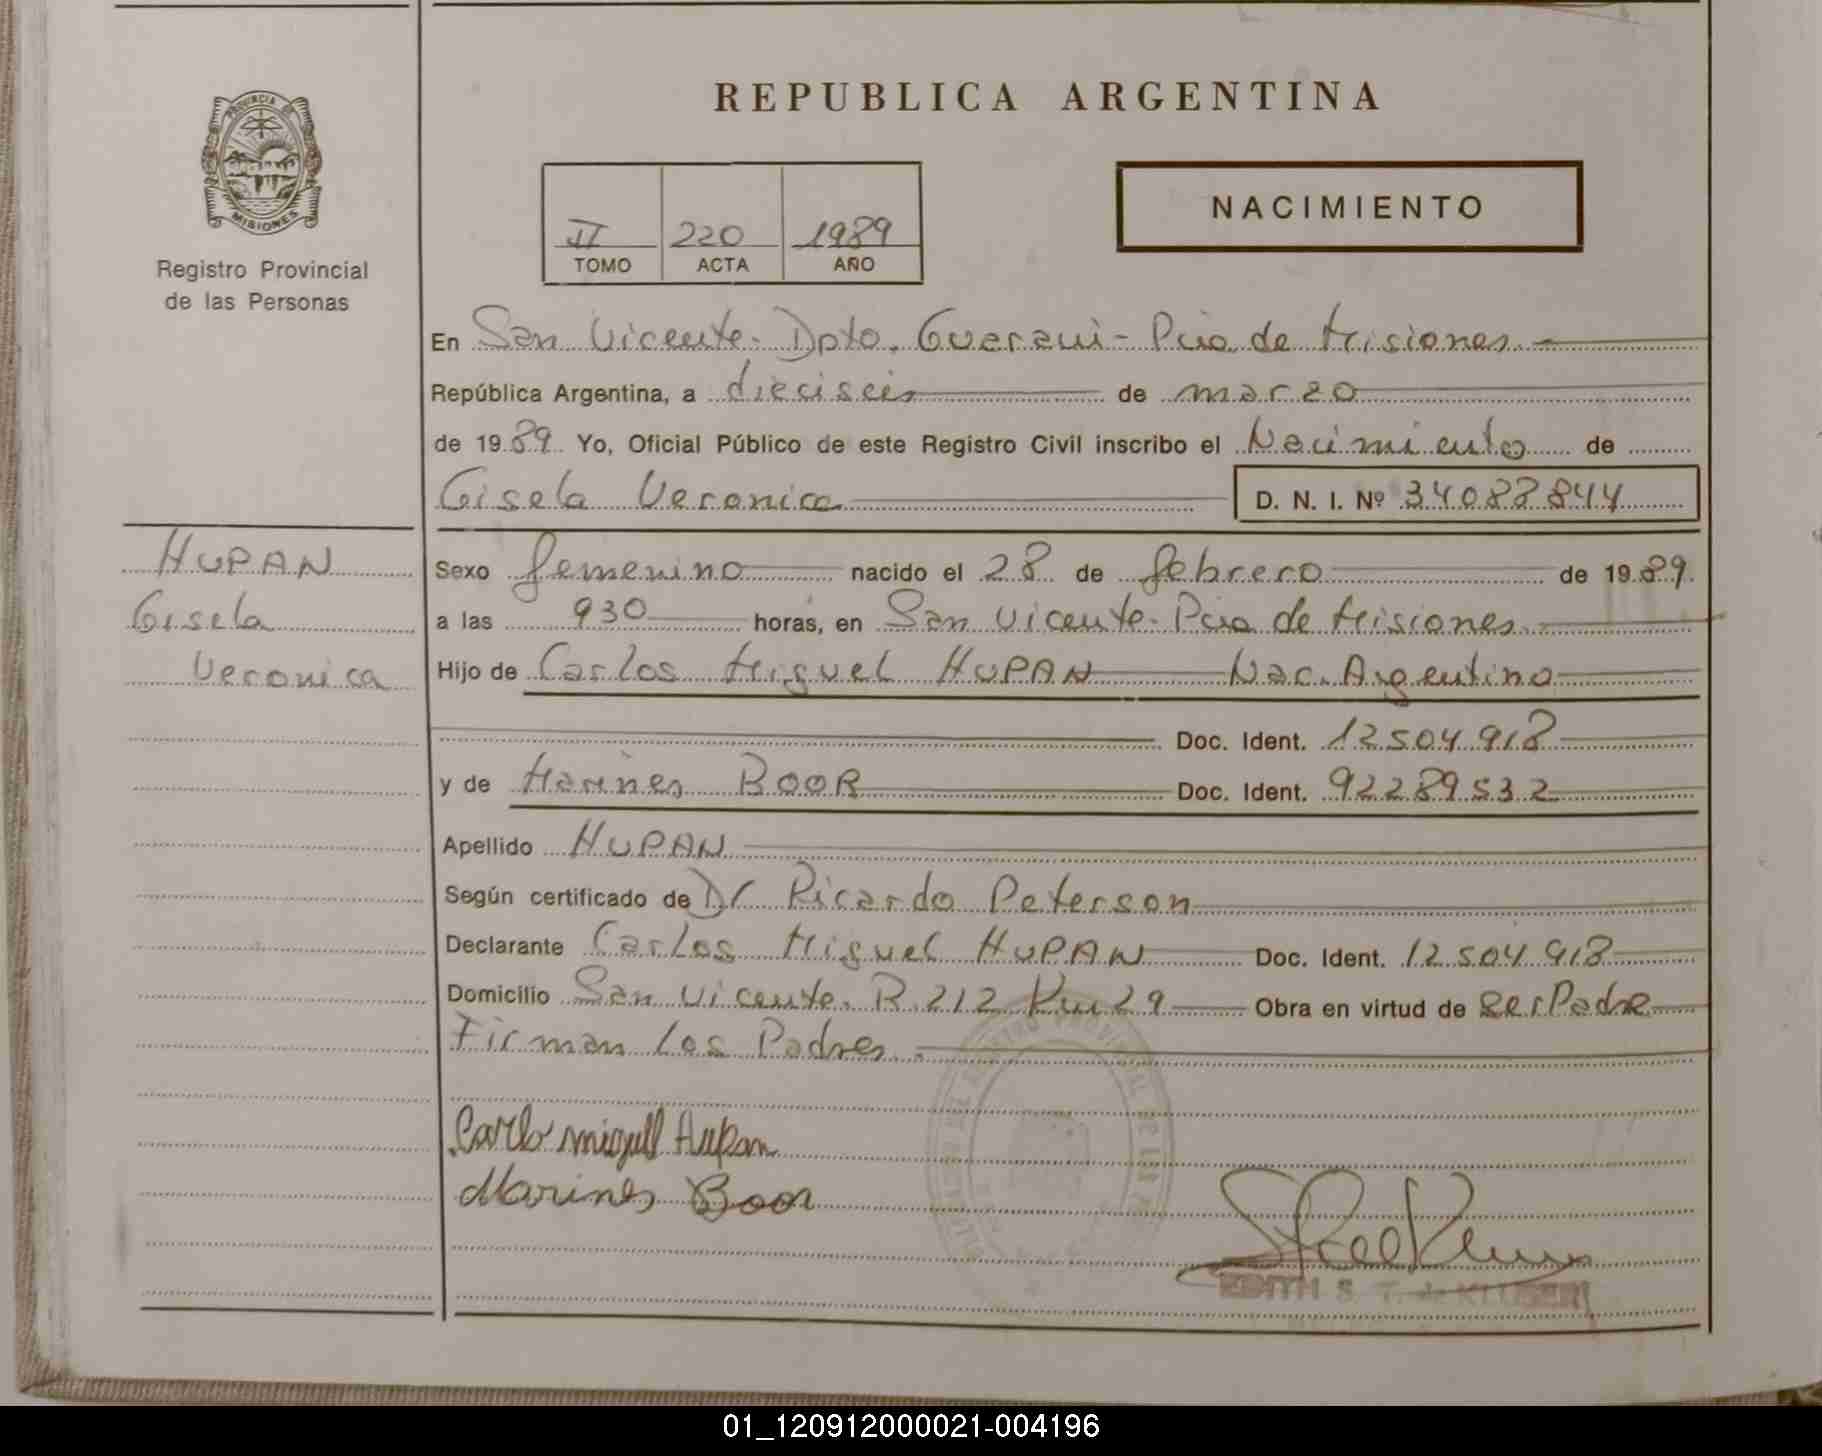 REPUBLICA ARGENTINA
PROVINCIA DE
MISIONES
Registro Provincial
de las Personas
II 220 1989
TOMO ACTA AÑO
NACIMIENTO
En San Vicente. Dpto. Guarani - Pcia de Misiones
República Argentina, a dieciseis de marzo
de 1989 Yo, Oficial Público de este Registro Civil inscribo el Nacimiento de
Gisela Veronica D. N. I. Nº 34088844
HUPAN
Gisela
Veronica
Sexo femenino nacido el 28 de febrero de 1989.
a las 930 horas, en San Vicente. Pcia de Misiones
Hijo de Carlos Miguel HUPAN Nac. Argentino
Doc. Ident. 12.504.918
y de Marines BOOR Doc. Ident. 92289532
Apellido HUPAN
Según certificado de Dr Ricardo Peterson
Declarante Carlos Miguel HUPAN Doc. Ident. 12.504.918
Domicilio San Vicente. R.212 Km29 Obra en virtud de ser Padre
Firman los Padres.
Carlo miguell Hupan
Marines Boor
EDITH S. T. de KLUSENER
01_120912000021-004196